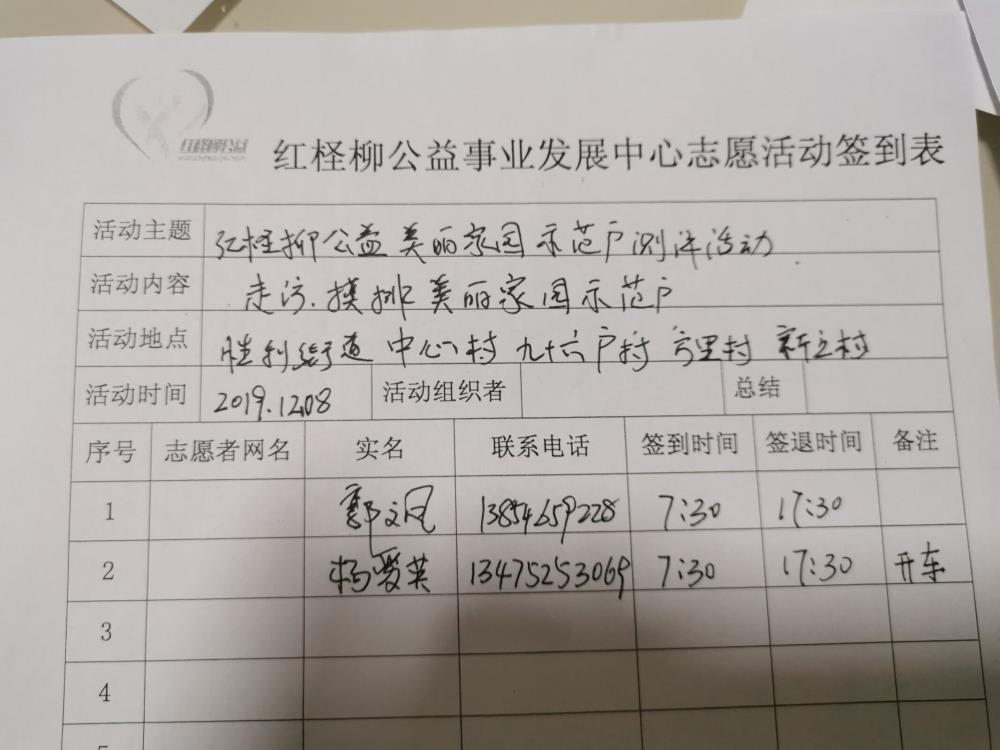 红柽柳公益
红柽柳公益事业发展中心志愿活动签到表
活动主题 红柽柳公益美丽家园示范户测评活动
活动内容 走访.摸排美丽家园示范户
活动地点 胜利街道 中心村 九十六户村 方里村 新立村
活动时间 2019.12.08 活动组织者 总结
序号 志愿者网名 实名 联系电话 签到时间 签退时间 备注
1 郭文凤 13854659228 7:30 17:30
2 杨爱英 13475253069 7:30 17:30 开车
3
4
5